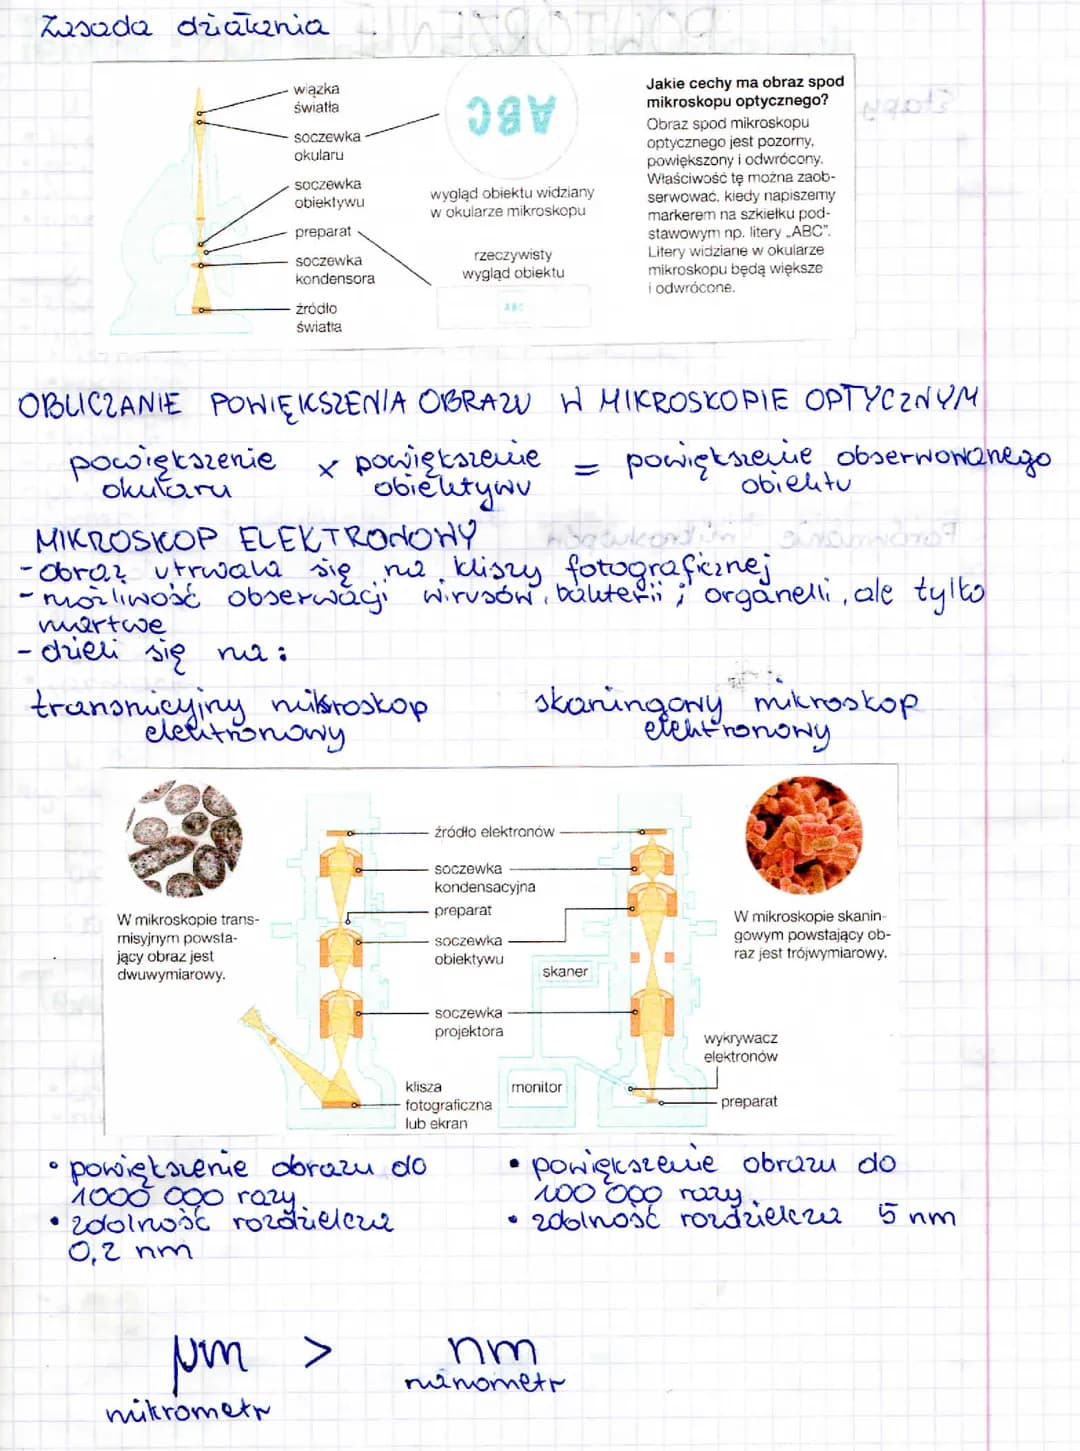 Zasada działania
wiązka
światła
soczewka
okularu
soczewka
obiektywu
preparat
soczewka
kondensora
źródło
światła
ABC
wygląd obiektu widziany
w okularze mikroskopu
rzeczywisty
wygląd obiektu
ABC
Jakie cechy ma obraz spod
mikroskopu optycznego?
Obraz spod mikroskopu
optycznego jest pozorny,
powiększony i odwrócony.
Właściwość tę można zaob-
serwować, kiedy napiszemy
markerem na szkiełku pod-
stawowym np. litery „ABC”.
Litery widziane w okularze
mikroskopu będą większe
i odwrócone.
OBLICZANIE POWIĘKSZENIA OBRAZU W MIKROSKOPIE OPTYCZNYM
powiększenie okularu x powiększenie obiektywu = powiększenie obserwowanego obiektu
MIKROSKOP ELEKTRONOWY
- obraz utrwala się na kliszy fotograficznej
- możliwość obserwacji wirusów, bakterii i organelli, ale tylko
martwe
- dzieli się na:
transmicyjny mikroskop
elektronowy
skaningowy mikroskop
elektronowy
W mikroskopie trans-
misyjnym powsta-
jący obraz jest
dwuwymiarowy.
źródło elektronów
soczewka
kondensacyjna
preparat
soczewka
obiektywu
skaner
soczewka
projektora
klisza
fotograficzna
lub ekran
monitor
wykrywacz
elektronów
preparat
W mikroskopie skanin-
gowym powstający ob-
raz jest trójwymiarowy.
• powiększenie obrazu do
1000 000 razy
• zdolność rozdzielcza
0,2 nm
• powiększenie obrazu do
100 000 razy
• zdolność rozdzielcza 5 nm
µm > nm
mikrometr
nanometr